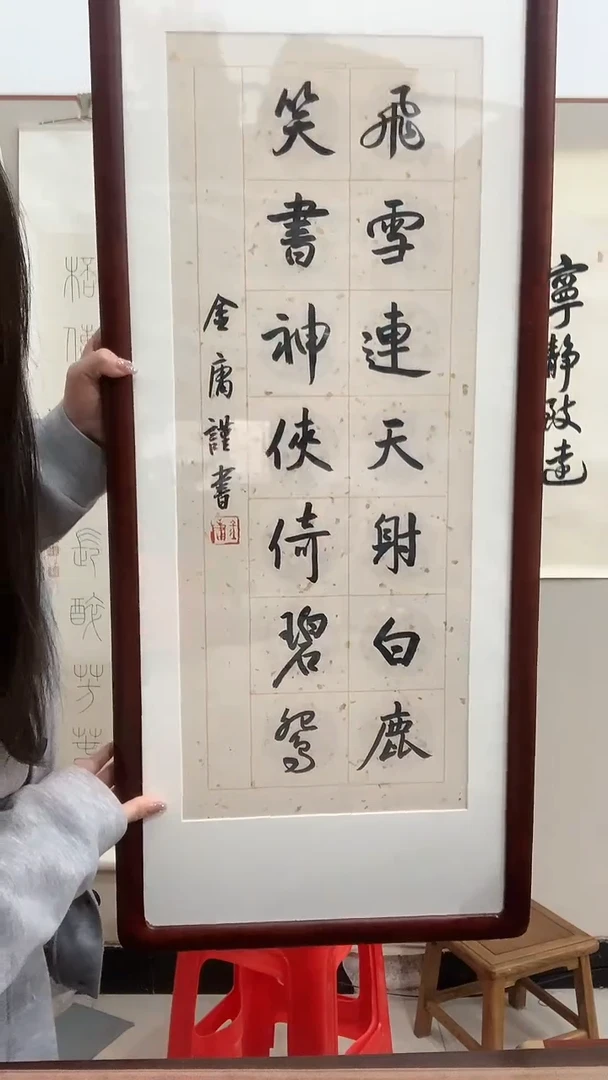 飛雪連天射白鹿
笑書神俠倚碧鴛
金庸謹書
金庸
寧靜致遠